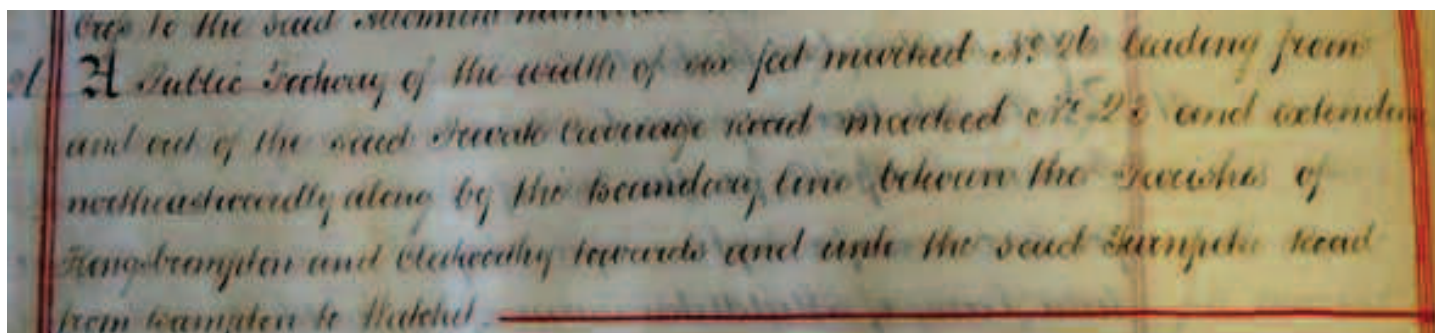 to the said
A Public Footway of the width of six feet marked No. 26 leading from
and out of the said Private Carriage Road marked No. 25 and extending
northeastwardly along by the Boundary line between the Parishes of
Kingsbrompton and Clatworthy towards and unto the said Turnpike Road
from Bampton to Watchet